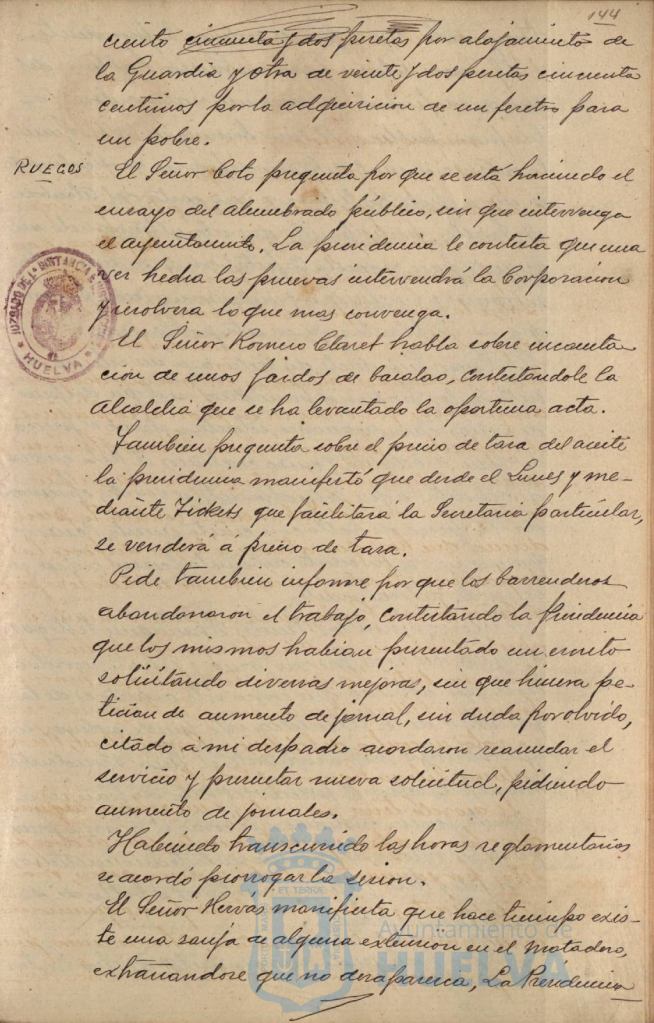 144
ciento cincuenta y dos pesetas por alojamiento de
la Guardia y otra de veinte y dos pesetas cincuenta
centimos por la adquisicion de un feretro para
un pobre.
RUEGOS
El Señor Coto pregunta por que se está haciendo el
ensayo del alumbrado público, sin que intervenga
el ayuntamiento. La presidencia le contesta que una
vez hecha las pruevas intervendrá la Corporacion
y resolvera lo que mas convenga.
JUZGADO DE 1ª INSTANCIA
HUELVA
El Señor Romero Claret habla sobre incauta
cion de unos fardos de bacalao, contestandole la
Alcaldia que se ha levantado la oportuna acta.
Tambien pregunta sobre el precio de tasa del aceite
la presidencia manifestó que desde el Lunes y me-
diante Tickets que facilitará la Secretaria particular,
se venderá á precio de tasa.
Pide tambien informe por que los barrenderos
abandonaron el trabajo, contestando la Presidencia
que los mismos habian presentado un escrito
solicitando diversas mejoras, sin que hiciera pe-
ticion de aumento de jornal, sin duda por olvido,
citado á mi despacho acordaron reanudar el
servicio y presentar nueva solicitud, pidiendo
aumento de jornales.
Habiendo transcurrido las horas reglamentarias
se acordó prorrogar la sesion.
El Señor Hervás manifiesta que hace tiempo exis-
te una zanja de alguna extension en el Matadero,
extrañandose que no desaparecia, La Presidencia
Ayuntamiento de
HUELVA